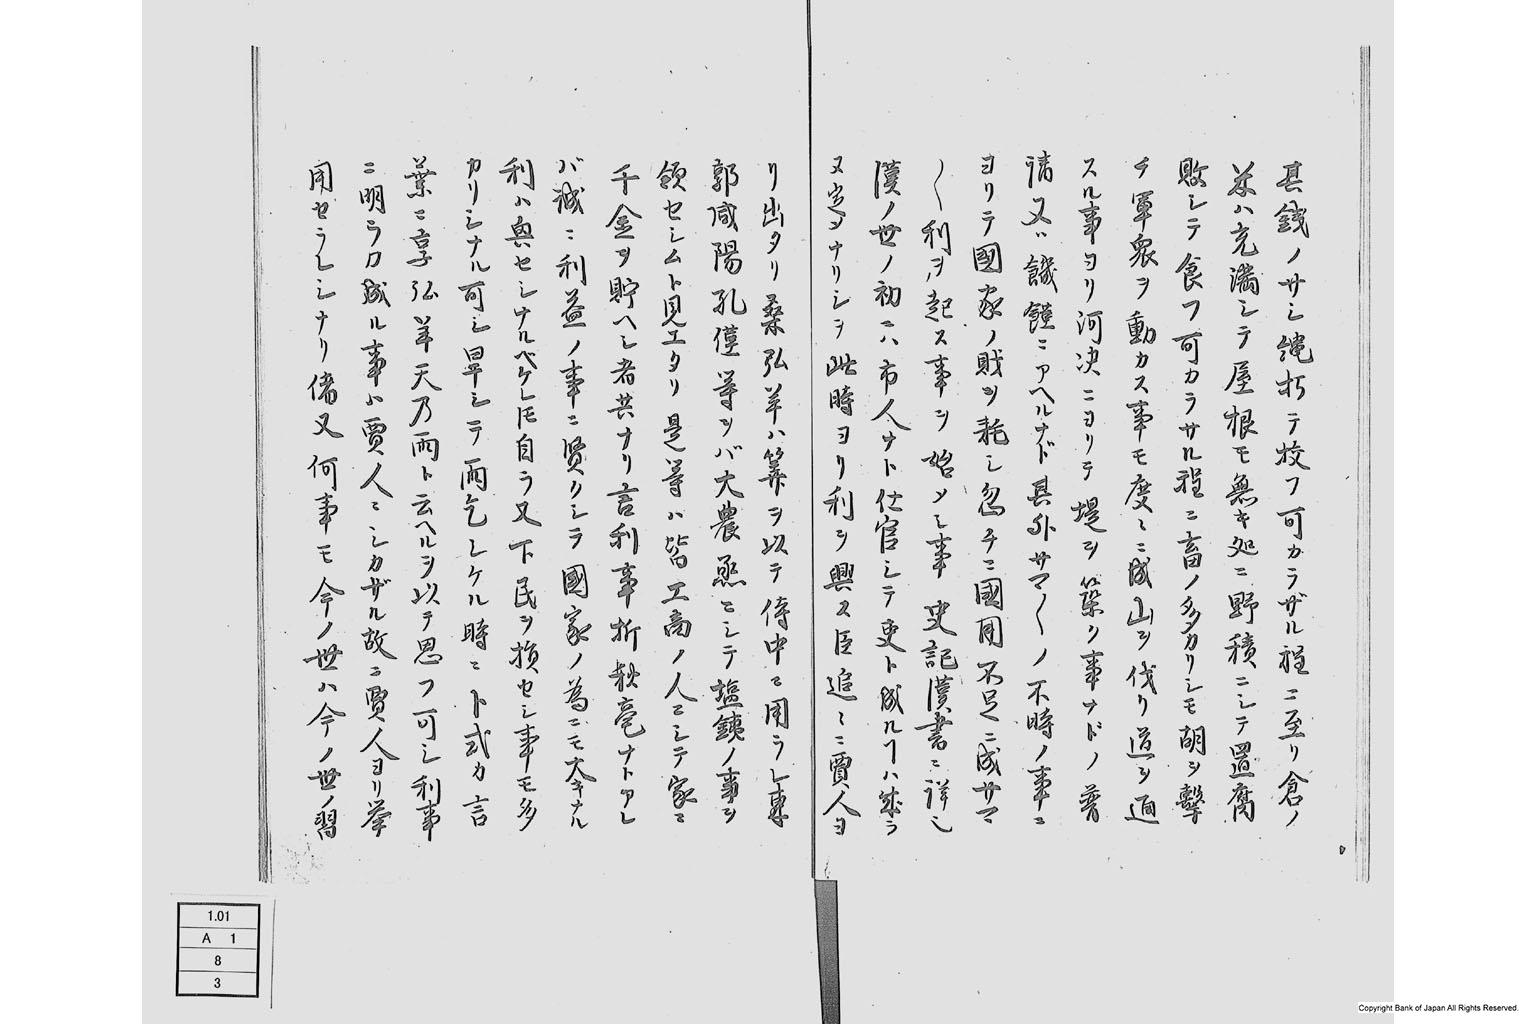 其錢ノサシ繩朽テ挍フ可カラザル程ニ至リ倉ノ
米ハ充満シテ屋根モ無キ処ニ野積ニシテ置腐
敗シテ食フ可カラサル程ニ畜ノ多カリシモ胡ヲ擊
チ軍衆ヲ動カス事モ度〻ニ成山ヲ伐リ道ヲ通
スル事ヨリ河决ニヨリテ堤ヲ築ク事ナドノ普
請又ハ饑饉ニアヘルナド其外サマ〱ノ不時ノ事ニ
ヨリテ國家ノ財ヲ耗シ忽チニ國用不足ニ成サマ
〱利ヲ起ス事ヲ始メシ事史記漢書ニ詳シ
漢ノ世ノ初ニハ市人ナト仕官シテ吏ト成ルヿハ成ラ
又定ナリシヲ此時ヨリ利ヲ興ス臣追〻ニ賈人ヨ
リ出タリ桑弘羊ハ筭ヲ以テ侍中ニ用ラレ東
郭咸陽孔僅等ヲバ大農丞ニシテ塩鉄ノ事ヲ
領セシムト見エタリ是等ハ皆工商ノ人ニシテ家ニ
千金ヲ貯ヘシ者共ナリ言利事析秋毫ナトアレ
バ誠ニ利益ノ事ニ賢クシテ國家ノ為ニモ大キナル
利ハ興セシナルベケレ𪜈自ラ又下民ヲ損セシ事モ多
カリシナル可シ旱シテ雨乞シケル時ニ卜式カ言
葉ニ烹弘羊天乃雨ト云ヘルヲ以テ思フ可シ利事
ニ明ラカ成ル事ハ賈人ニシカザル故ニ賈人ヨリ挙
用セラレシナリ偖又何事モ今ノ世ハ今ノ世ノ習
1.01
A 1
8
3
Copyright Bank of Japan All Rights Reserved.